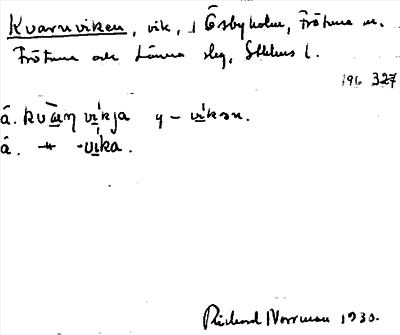 Kvarnviken, vik, i Ösbyholm, Frötuna sn.
Frötuna och Länna slg, Sthlms l.
196 327
å. kvan vikja y - vikən.
å. -"- -vika.
Richard Norrman 1930.